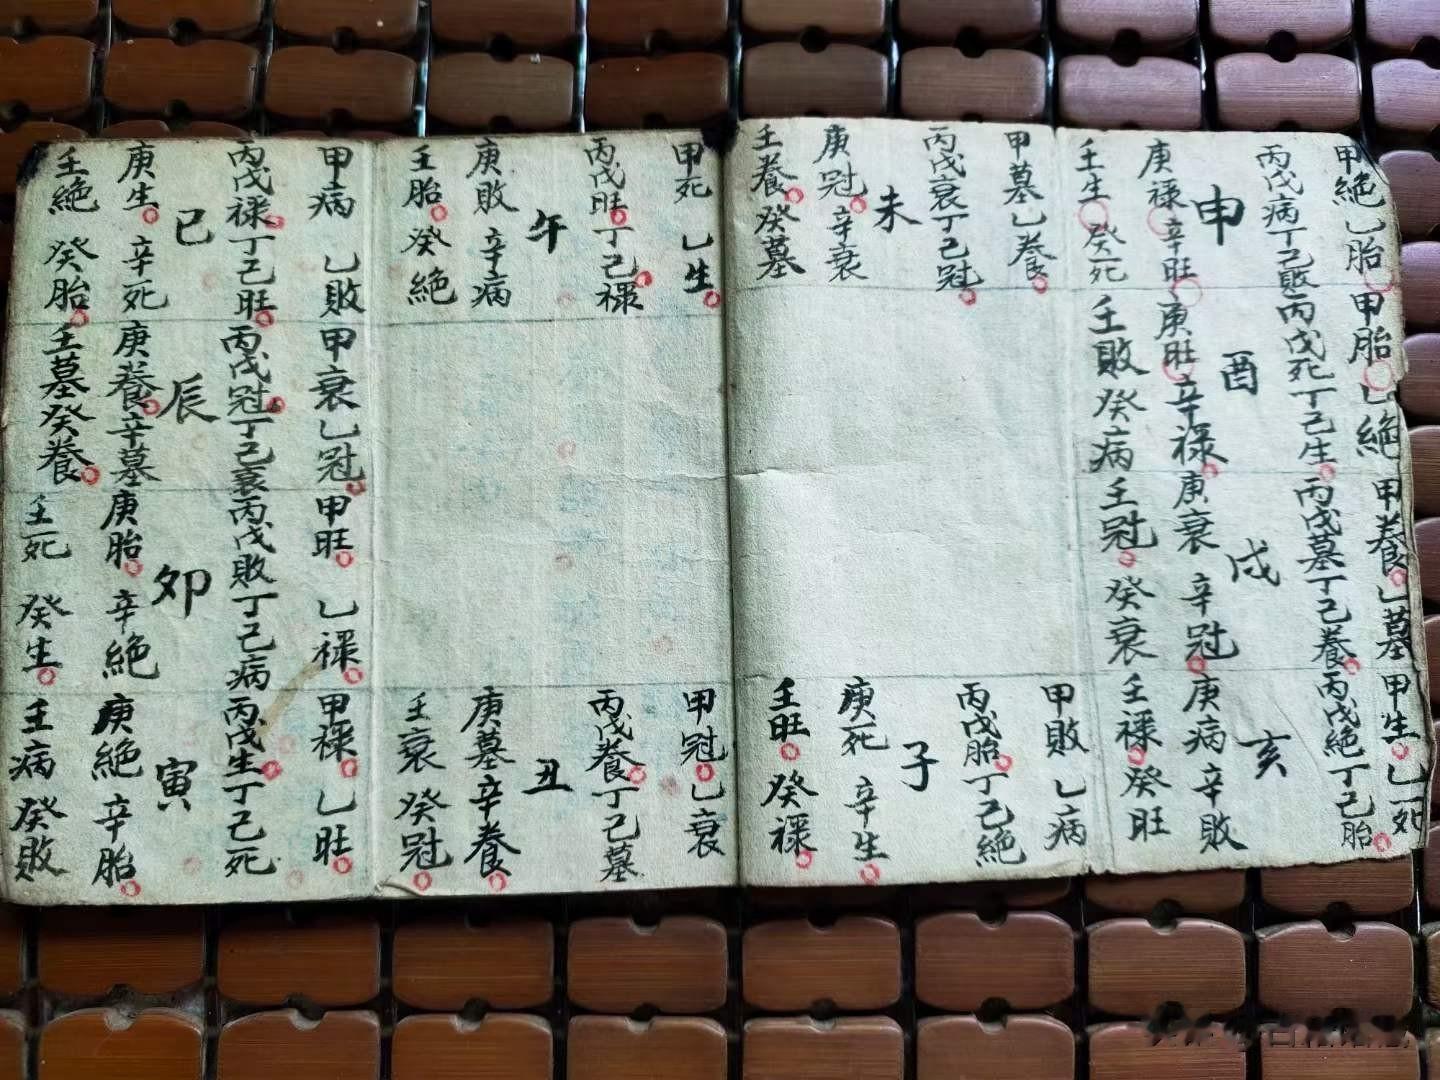 甲絕乙胎
丙戊病丁己敗
申
庚禄辛旺
壬生癸死
甲胎乙絕
丙戊死丁己生
酉
庚旺辛禄
壬敗癸病
甲養乙墓
丙戊墓丁己養
戌
庚衰辛冠
壬冠癸衰
甲生乙死
丙戊絕丁己胎
亥
庚病辛敗
壬禄癸旺
甲墓乙養
丙戊衰丁己冠
未
庚冠辛衰
壬養癸墓
甲敗乙病
丙戊胎丁己絕
子
庚死辛生
壬旺癸禄
甲死乙生
丙戊旺丁己禄
午
庚敗辛病
壬胎癸絕
甲冠乙衰
丙戊養丁己墓
丑
庚墓辛養
壬衰癸冠
甲病乙敗
丙戊禄丁己旺
巳
庚生辛死
壬絕癸胎
甲衰乙冠
丙戊冠丁己衰
辰
庚養辛墓
壬墓癸養
甲旺乙禄
丙戊敗丁己病
卯
庚胎辛絕
壬死癸生
甲禄乙旺
丙戊生丁己死
寅
庚絕辛胎
壬病癸敗